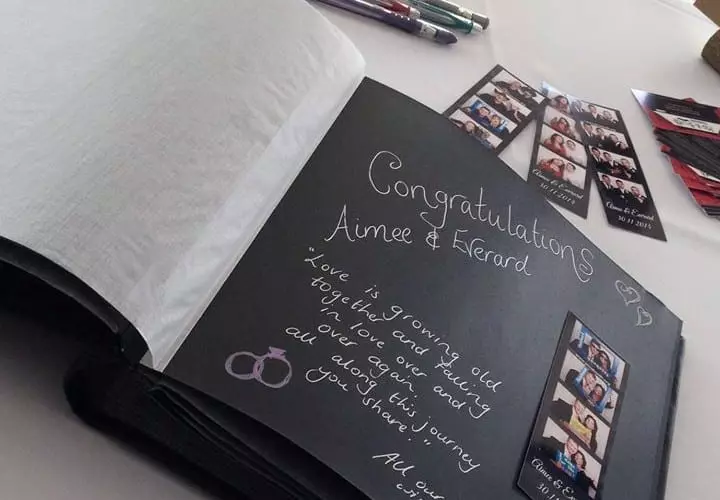 Congratulations
Aimee & Everard
"Love is growing old
together and falling
in love over and
over again,
all along this journey
you share."
All our
Aimee & Everard
30.11.2013
Aimee & Everard
30.11.2013
Aimee & E
30.11